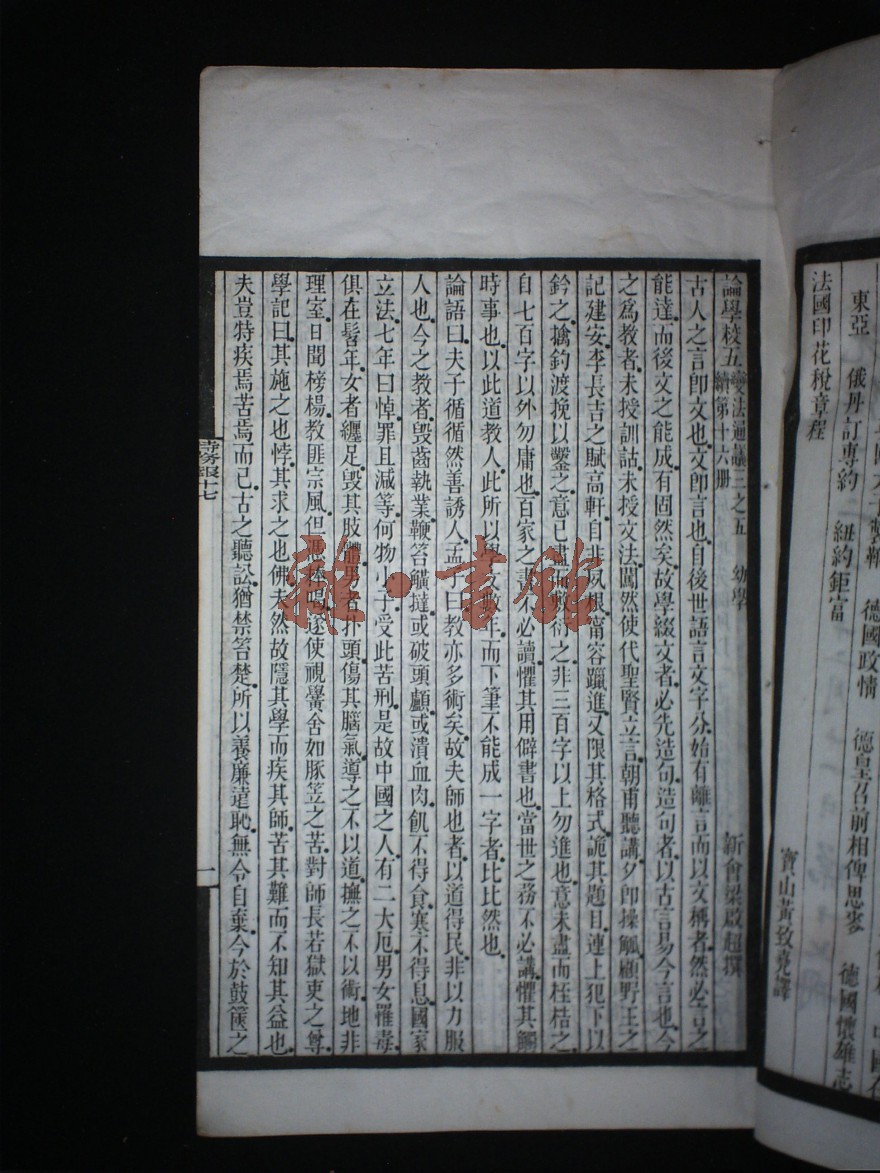 東亞　俄丹訂專約　紐約鉅富
德國政情　德皇召前相俾思麥　德國懷雄志
法國印花稅章程
寶山黃致堯譯
論學校五
變法通議三之五　幼學
續第十六册
新會梁啟超撰
古人之言卽文也文卽言也自後世語言文字分始有離言而以文稱者然必言之
能達而後文之能成有固然矣故學綴文者必先造句造句者以古言易今言也今
之爲教者未授訓詁未授文法闖然使代聖賢立言朝甫聽講夕卽操觚顧野王之
記建安李長吉之賦高軒自非夙根甯容躐進又限其格式詭其題目連上犯下以
鈐之擒釣渡挽以鑿之意已盡而敷衍之非三百字以上勿進也意未盡而桎梏之
自七百字以外勿庸也百家之書不必讀懼其用僻書也當世之務不必講懼其觸
時事也以此道教人此所以學文數年而下筆不能成一字者比比然也
論語曰夫子循循然善誘人孟子曰教亦多術矣故夫師也者以道得民非以力服
人也今之教者毁齒執業鞭笞觵撻或破頭顱或潰血肉飢不得食寒不得息國家
立法七年曰悼罪且減等何物小子受此苦刑是故中國之人有二大厄男女罹毒
俱在髫年女者纏足毁其肢體男者扑頭傷其腦氣導之不以道撫之不以術地非
理室日聞榜楊教匪宗風但憑棒喝遂使視黌舍如豚笠之苦對師長若獄吏之尊
學記曰其施之也悖其求之也佛夫然故隱其學而疾其師苦其難而不知其益也
夫豈特疾焉苦焉而已古之聽訟猶禁笞楚所以養廉遠恥無令自棄今於鼓篋之
時務報十七
一
雜·書館